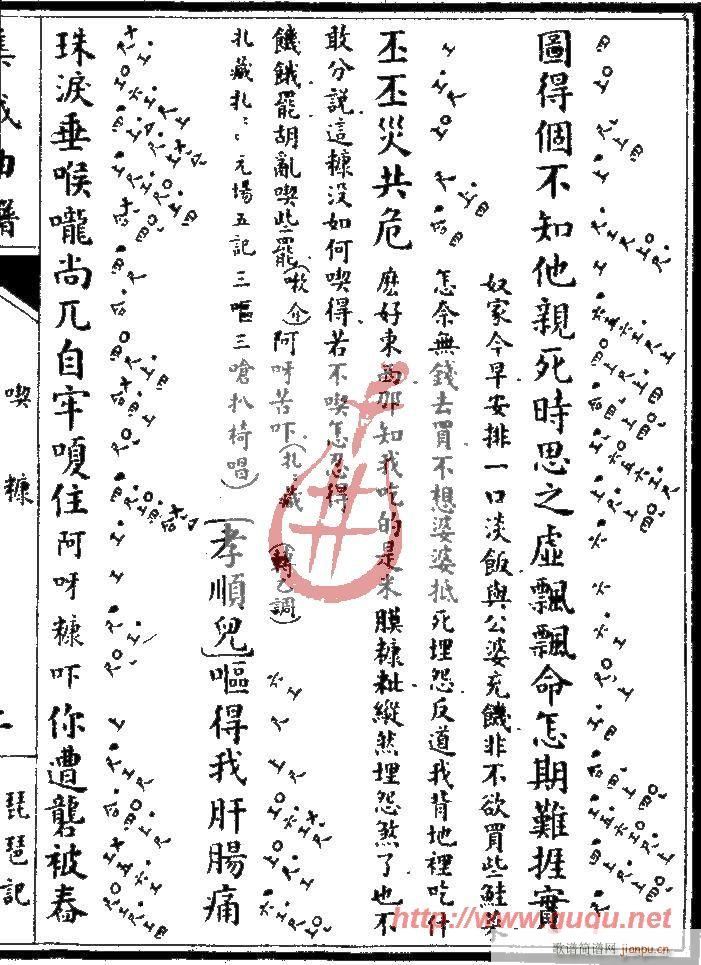 圖得個不知他親死時思之虛飄飄命怎期難捱實
奴家今早安排一口淡飯與公婆充饑非不欲買些鮭菜
怎奈無錢去買不想婆婆抵死埋怨反道我背地裡吃什
丕丕災共危
麽好東西那知我吃的是米膜糠粃縱然埋怨煞了也不
敢分說這糠没如何喫得若不喫怎忍得
饑餓罷胡亂喫些罷(嗽介)阿呀苦吓(扎藏轉乙調)
扎藏扎:: 元場五記三嘔三嗆扒椅唱)
(孝順兒)嘔得我肝腸痛
珠淚垂喉嚨尚兀自牢嗄住阿呀糠吓你遭礱被舂
集成曲譜
喫糠
二
琵琶記
http://www.guqu.net
歌谱简谱网 jianpu.cn